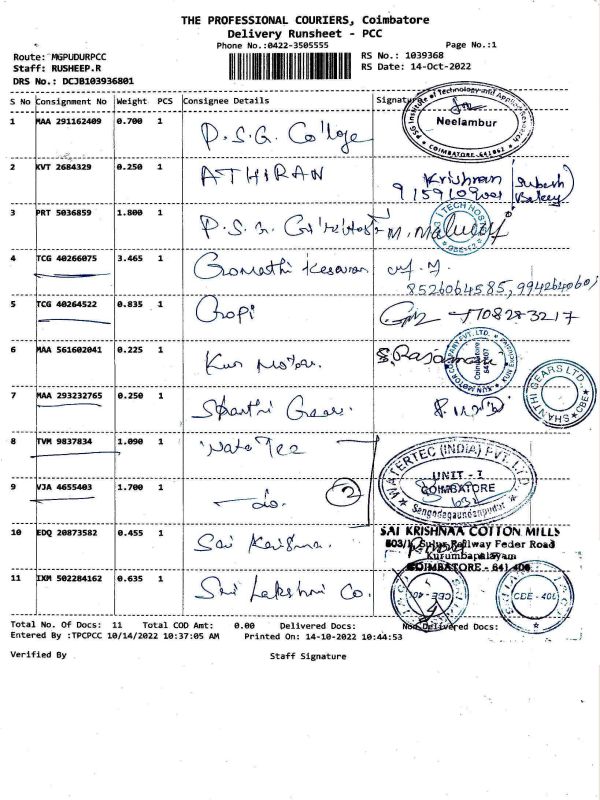 THE PROFESSIONAL COURIERS, Coimbatore
Delivery Runsheet - PCC
Phone No.:0422-3505555
Page No.:1
Route: MGPUDURPCC
Staff: RUSHEEP.R
DRS No.: DCJB103936801
RS No.: 1039368
RS Date: 14-Oct-2022
S No Consignment No Weight PCS Consignee Details Signature
1 MAA 291162409 0.700 1 P.S.G. College
PSG Institute of Technology and Applied Research
Neelambur
COIMBATORE-641062
2 KVT 2684329 0.250 1 ATHIRAN Krishnan
3 PRT 5036859 1.800 1 P.S.G.
4 TCG 40266075 3.465 1 Gomathi Kesavan
8526064585,
5 TCG 40264522 0.835 1 Gopi
6 MAA 561602041 0.225 1 Kun Motor.
7 MAA 293232765 0.250 1 Shanthi Gear.
SHANTHI GEARS LTD. CBE
8 TVM 9837834 1.090 1 Water Tec
WATERTEC (INDIA) PVT. LTD
UNIT - I
COIMBATORE
9 VJA 4655403 1.700 1 - do. 2
10 EDQ 20873582 0.455 1 Sai Krishna.
SAI KRISHNAA COTTON MILLS
503/1, Sulur Railway Feder Road
Kurumbapalayam
COIMBATORE - 641 406
11 IXM 502284162 0.635 1 Sri Lakshmi Co.
CBE - 406
Total No. Of Docs: 11 Total COD Amt: 0.00 Delivered Docs: Non Delivered Docs:
Entered By :TPCPCC 10/14/2022 10:37:05 AM Printed On: 14-10-2022 10:44:53
Verified By Staff Signature